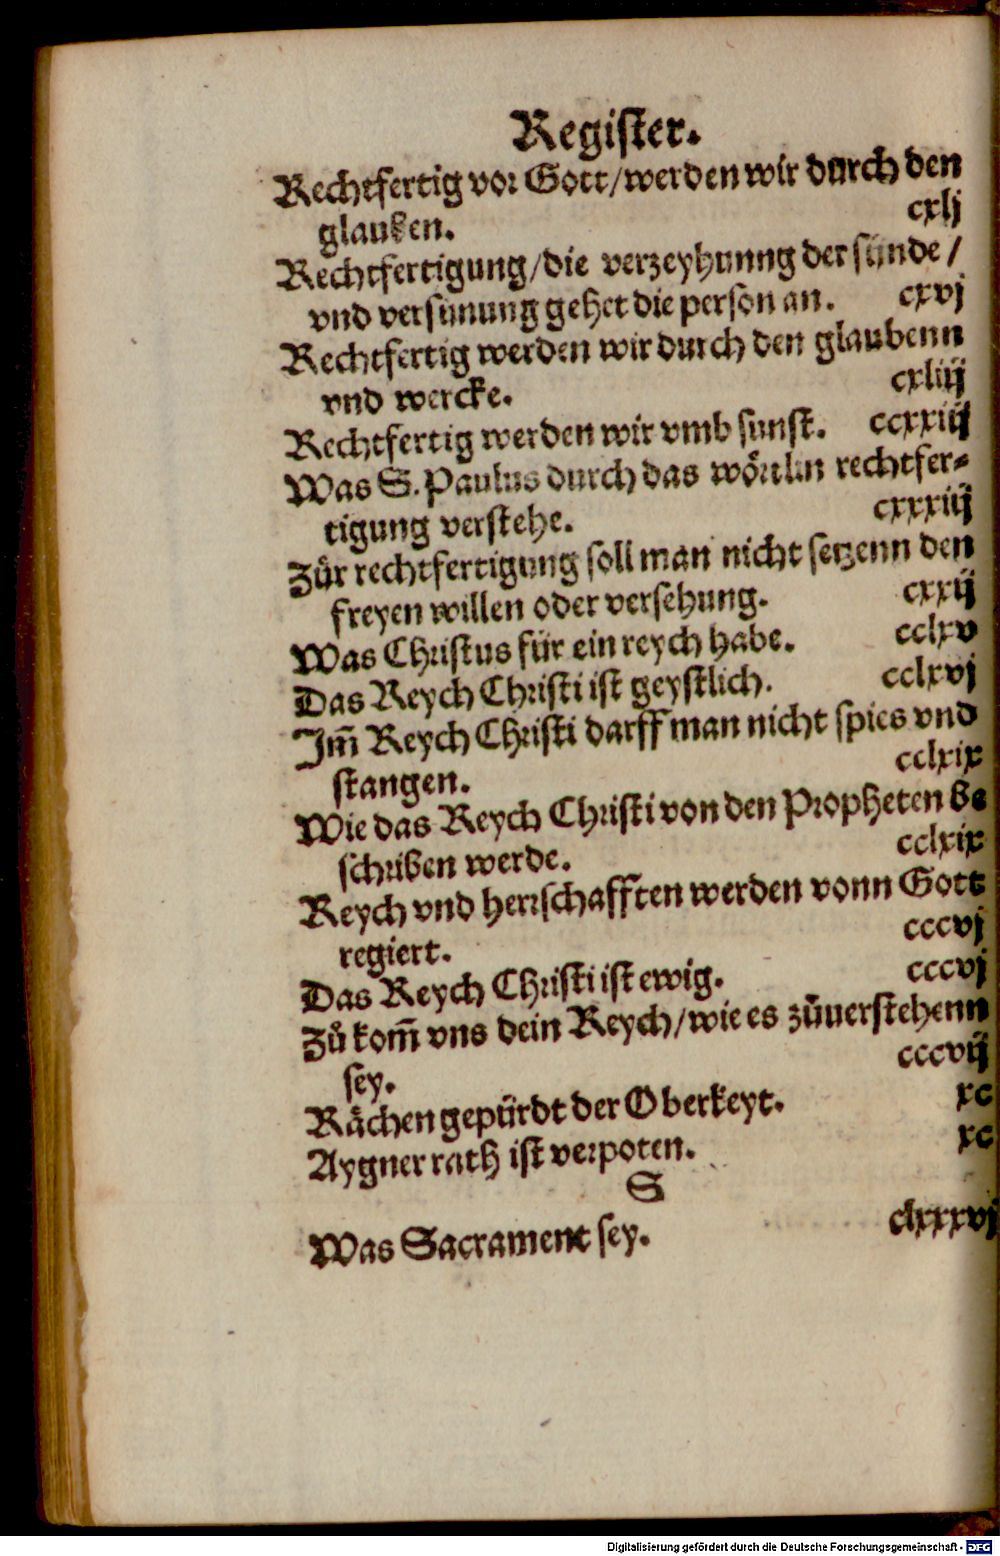 Register.
Rechtfertig vor Gott/werden wir durch den
glauben. cxlj
Rechtfertigung/die verzeyhunng der sünde/
vnd versünung gehet die person an. cxvj
Rechtfertig werden wir durch den glaubenn
vnd wercke. cxliij
Rechtfertig werden wir vmb sunst. ccxxiij
Was S. Paulus durch das wörtlin rechtfer⸗
tigung verstehe. cxxxiij
Zůr rechtfertigung soll man nicht setzenn den
freyen willen oder versehung. cxxij
Was Christus für ein reych habe. cclxv
Das Reych Christi ist geystlich. cclxvj
Im̃ Reych Christi darff man nicht spies vnd
stangen. cclxix
Wie das Reych Christi von den Propheten be
schriben werde. cclxix
Reych vnd herrschafften werden vonn Gott
regiert. cccvj
Das Reych Christi ist ewig. cccvj
Zů kom̃ vns dein Reych/wie es zůuerstehenn
sey. cccvij
Rächen gepürdt der Oberkeyt. xc
Aygner rath ist verpoten. xc
S
Was Sacrament sey. clxxxvj
Digitalisierung gefördert durch die Deutsche Forschungsgemeinschaft - DFG